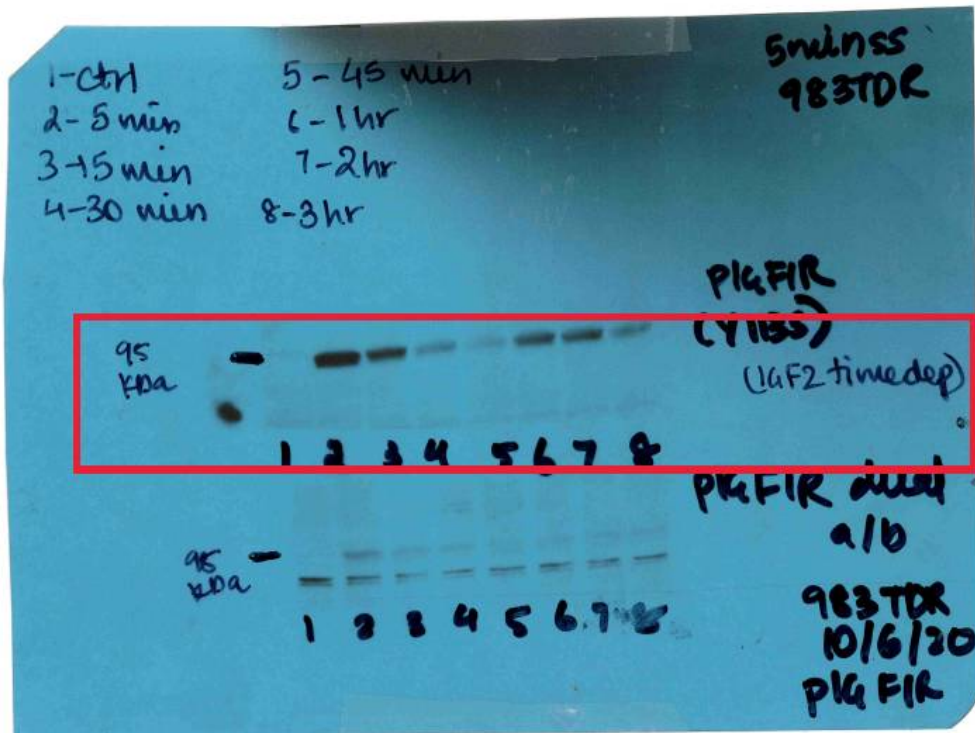 1-Ctrl
2-5 min
3-15 min
4-30 min
5-45 min
6-1hr
7-2hr
8-3hr
5minss
983TDR
pIGFIR
(Y1135)
(IGF2 timedep)
95
KDa
1 2 3 4 5 6 7 8
pIGFIR dual
a/b
95
KDa
1 2 3 4 5 6 7 8
983TDR
10/6/20
pIGFIR